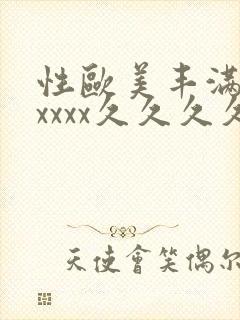 性歐美丰滿
xxxx久久久久
天使會笑偶尔